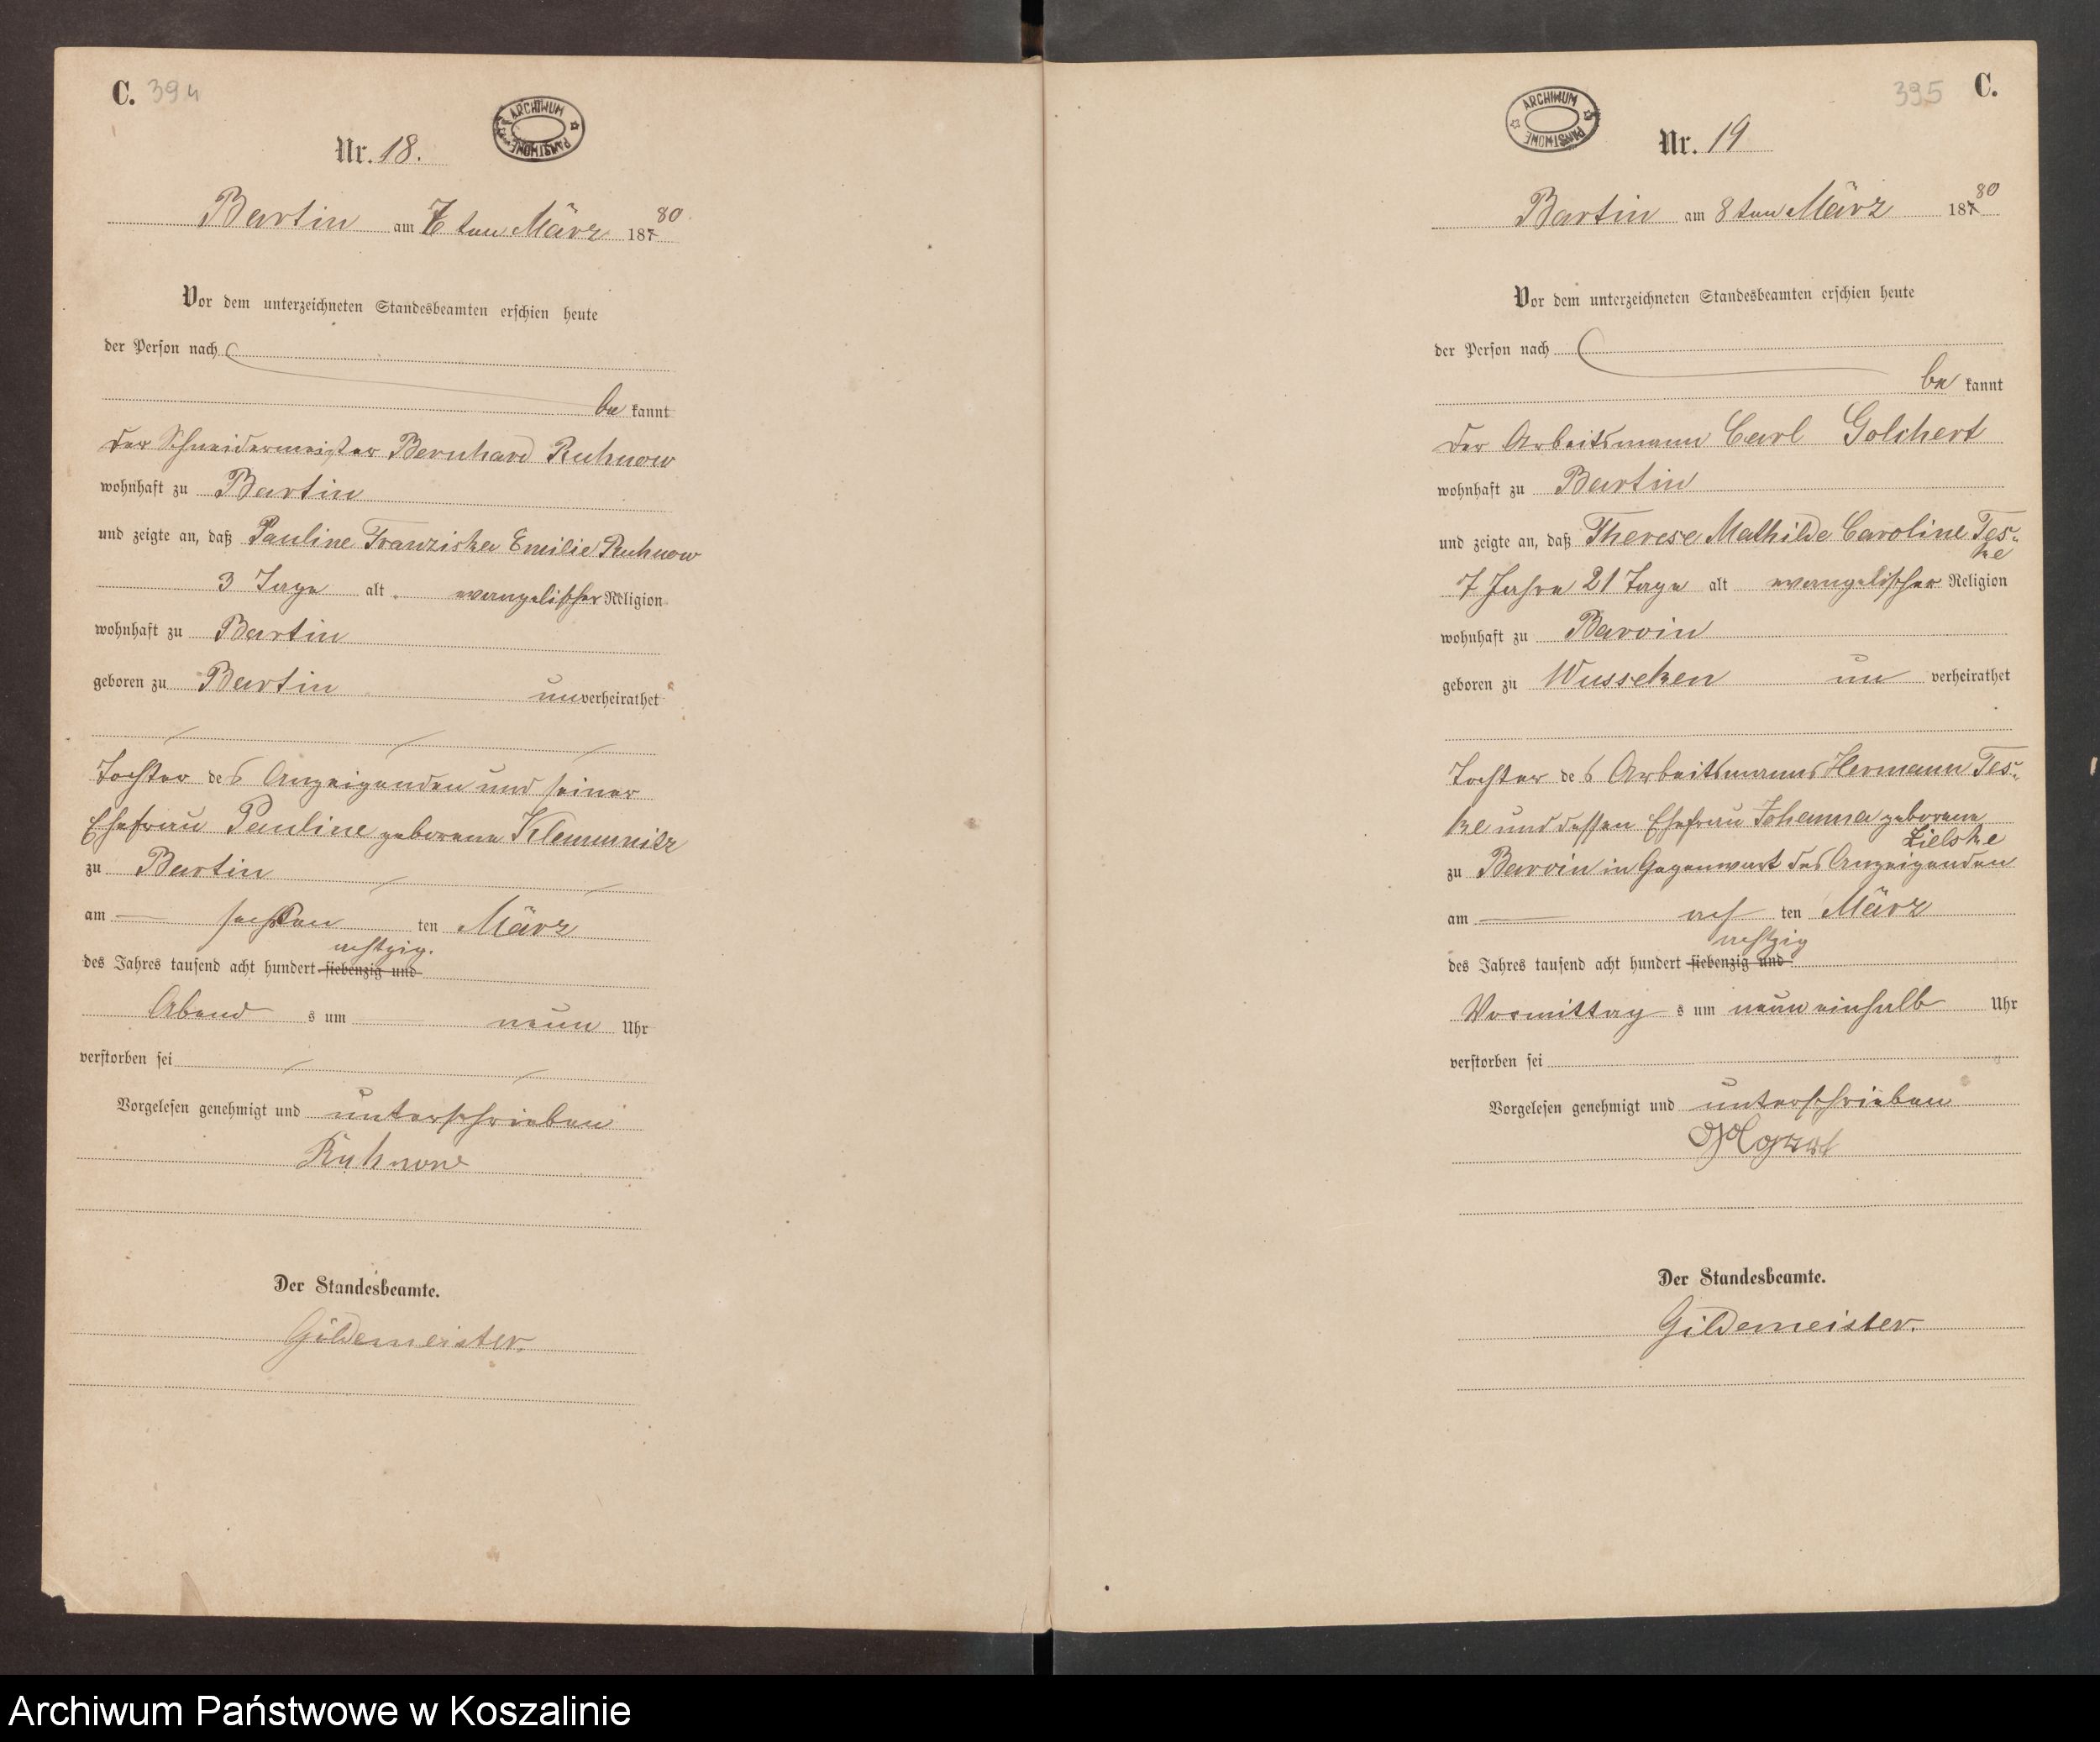 C. 394
ARCHIWUM PAŃSTWOWE
Nr. 18.
Bartin am 7 ten März 18780.
Vor dem unterzeichneten Standesbeamten erschien heute
der Person nach
be kannt
der Schneidermeister Bernhard Ruhnow
wohnhaft zu Bartin
und zeigte an, daß Pauline Franziska Emilie Ruhnow
3 Tage alt evangelischer Religion
wohnhaft zu Bartin
geboren zu Bartin unverheirathet
Tochter des Anzeigenden und seiner
Ehefrau Pauline geborene Klemmnitz
zu Bartin
am sechsten ten März
achtzig.
des Jahres tausend acht hundert siebenzig und
Abend s um neun Uhr
verstorben sei
Vorgelesen genehmigt und unterschrieben
Ruhnow
Der Standesbeamte.
Gildemeister.
395 C.
ARCHIWUM PAŃSTWOWE
Nr. 19
Bartin am 8 ten März 18780
Vor dem unterzeichneten Standesbeamten erschien heute
der Person nach
be kannt
der Arbeitsmann Carl Golchert
wohnhaft zu Bartin
und zeigte an, daß Therese Mathilde Caroline Tes-
ke
7 Jahre 21 Tage alt evangelischer Religion
wohnhaft zu Barvin
geboren zu Wusseken un verheirathet
Tochter des Arbeitsmanns Hermann Tes-
ke und dessen Ehefrau Johanna geborene
Zielske
zu Barvin in Gegenwart des Anzeigenden
am acht ten März
achtzig
des Jahres tausend acht hundert siebenzig und
Vormittag s um neun einhalb Uhr
verstorben sei
Vorgelesen genehmigt und unterschrieben
Der Standesbeamte.
Gildemeister.
Archiwum Państwowe w Koszalinie